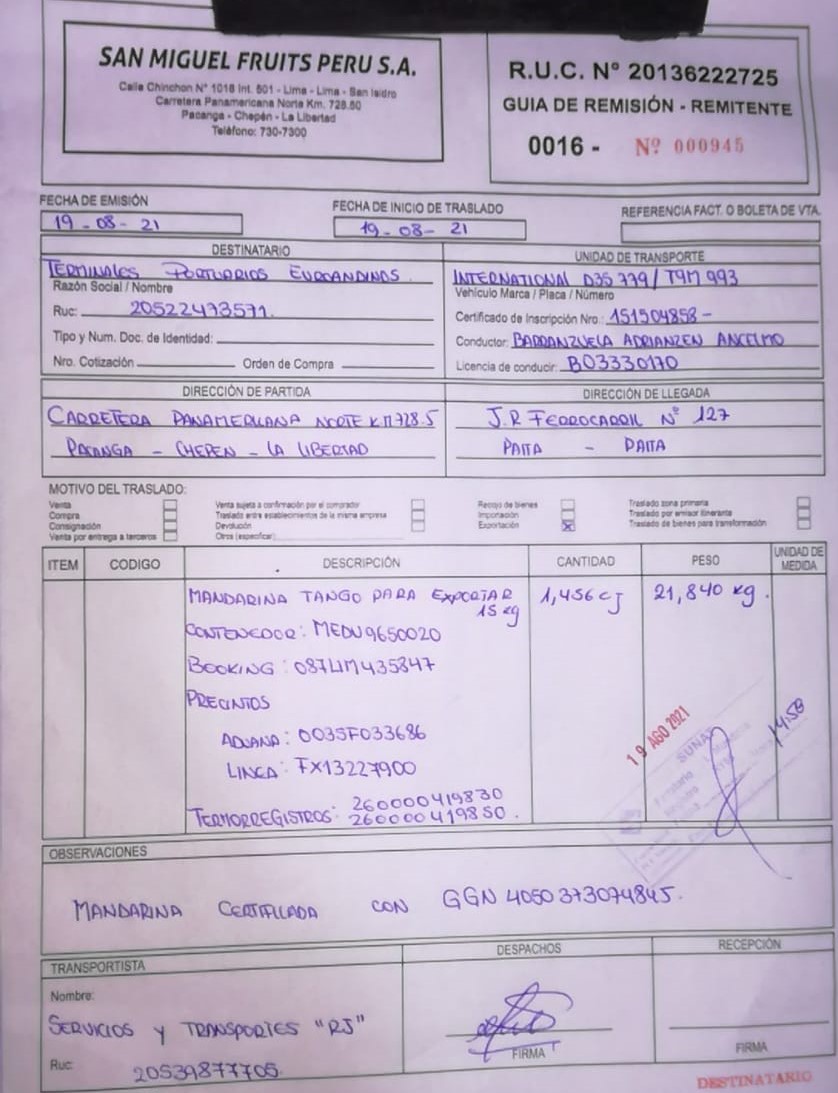 SAN MIGUEL FRUITS PERU S.A.
Calle Chinchon N° 1018 Int. 601 - Lima - Lima - San Isidro
Carretera Panamericana Norte Km. 728.50
Pacanga - Chepén - La Libertad
Teléfono: 730-7300
R.U.C. N° 20136222725
GUIA DE REMISIÓN - REMITENTE
0016 - Nº 000945
FECHA DE EMISIÓN
19-08-21
FECHA DE INICIO DE TRASLADO
19-08-21
REFERENCIA FACT. O BOLETA DE VTA.
DESTINATARIO
TERMINALES PORTUARIOS EUROANDINOS
Razón Social / Nombre
Ruc: 20522473571.
Tipo y Num. Doc. de Identidad:
Nro. Cotización Orden de Compra
UNIDAD DE TRANSPORTE
INTERNATIONAL D3S 779 / T9M 993
Vehículo Marca / Placa / Número
Certificado de Inscripción Nro.: 151504858 -
Conductor: BARRANZUELA ADRIANZEN ANCELMO
Licencia de conducir: B03330170
DIRECCIÓN DE PARTIDA
CARRETERA PANAMERICANA NORTE KM 728.5
PACANGA - CHEPEN - LA LIBERTAD
DIRECCIÓN DE LLEGADA
J.R FERROCARRIL N° 127
PAITA - PAITA
MOTIVO DEL TRASLADO:
Venta
Compra
Consignación
Venta por entrega a terceros
Venta sujeta a confirmación por el comprador
Traslado entre establecimientos de la misma empresa
Devolución
Otros (especificar)
Recojo de bienes
Importación
Exportación X
Traslado zona primaria
Traslado por emisor itinerante
Traslado de bienes para transformación
ITEM CODIGO DESCRIPCIÓN CANTIDAD PESO UNIDAD DE MEDIDA
MANDARINA TANGO PARA EXPORTAR 1,456 cJ 21,840 kg.
15 kg
CONTENEDOR: MEDU9650020
BOOKING: 087LIM435847
PRECINTOS
ADUANA: 0035F033686
LINEA: FX13227900
TERMORREGISTROS: 260000419830
260000419850.
19 AGO 2021
SUNAT
14:58
OBSERVACIONES
MANDARINA CERTIFICADA CON GGN 4050373074845.
TRANSPORTISTA
Nombre:
SERVICIOS Y TRANSPORTES "RJ"
Ruc: 20539877705
DESPACHOS
FIRMA
RECEPCIÓN
FIRMA
DESTINATARIO